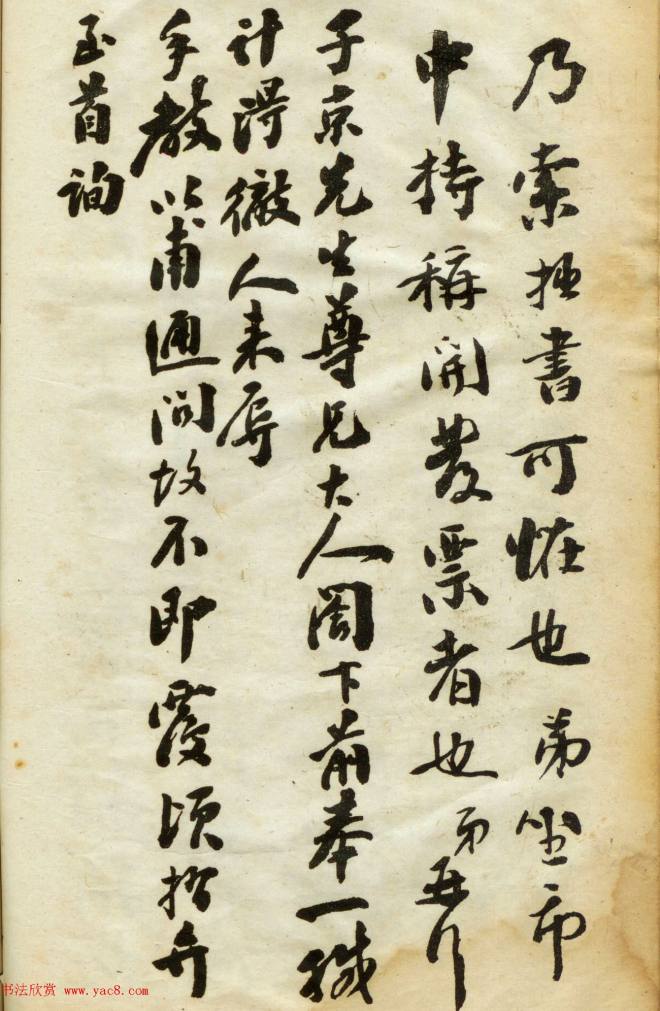 乃索拙書可怪也弟坐市
中持稱開發票者也弟再行
子京先生尊兄大人閣下前奉一械
計得徹人来辱
手教以甫通問故不即覆頃拾弁
至首詢
书法欣赏 www.yac8.com